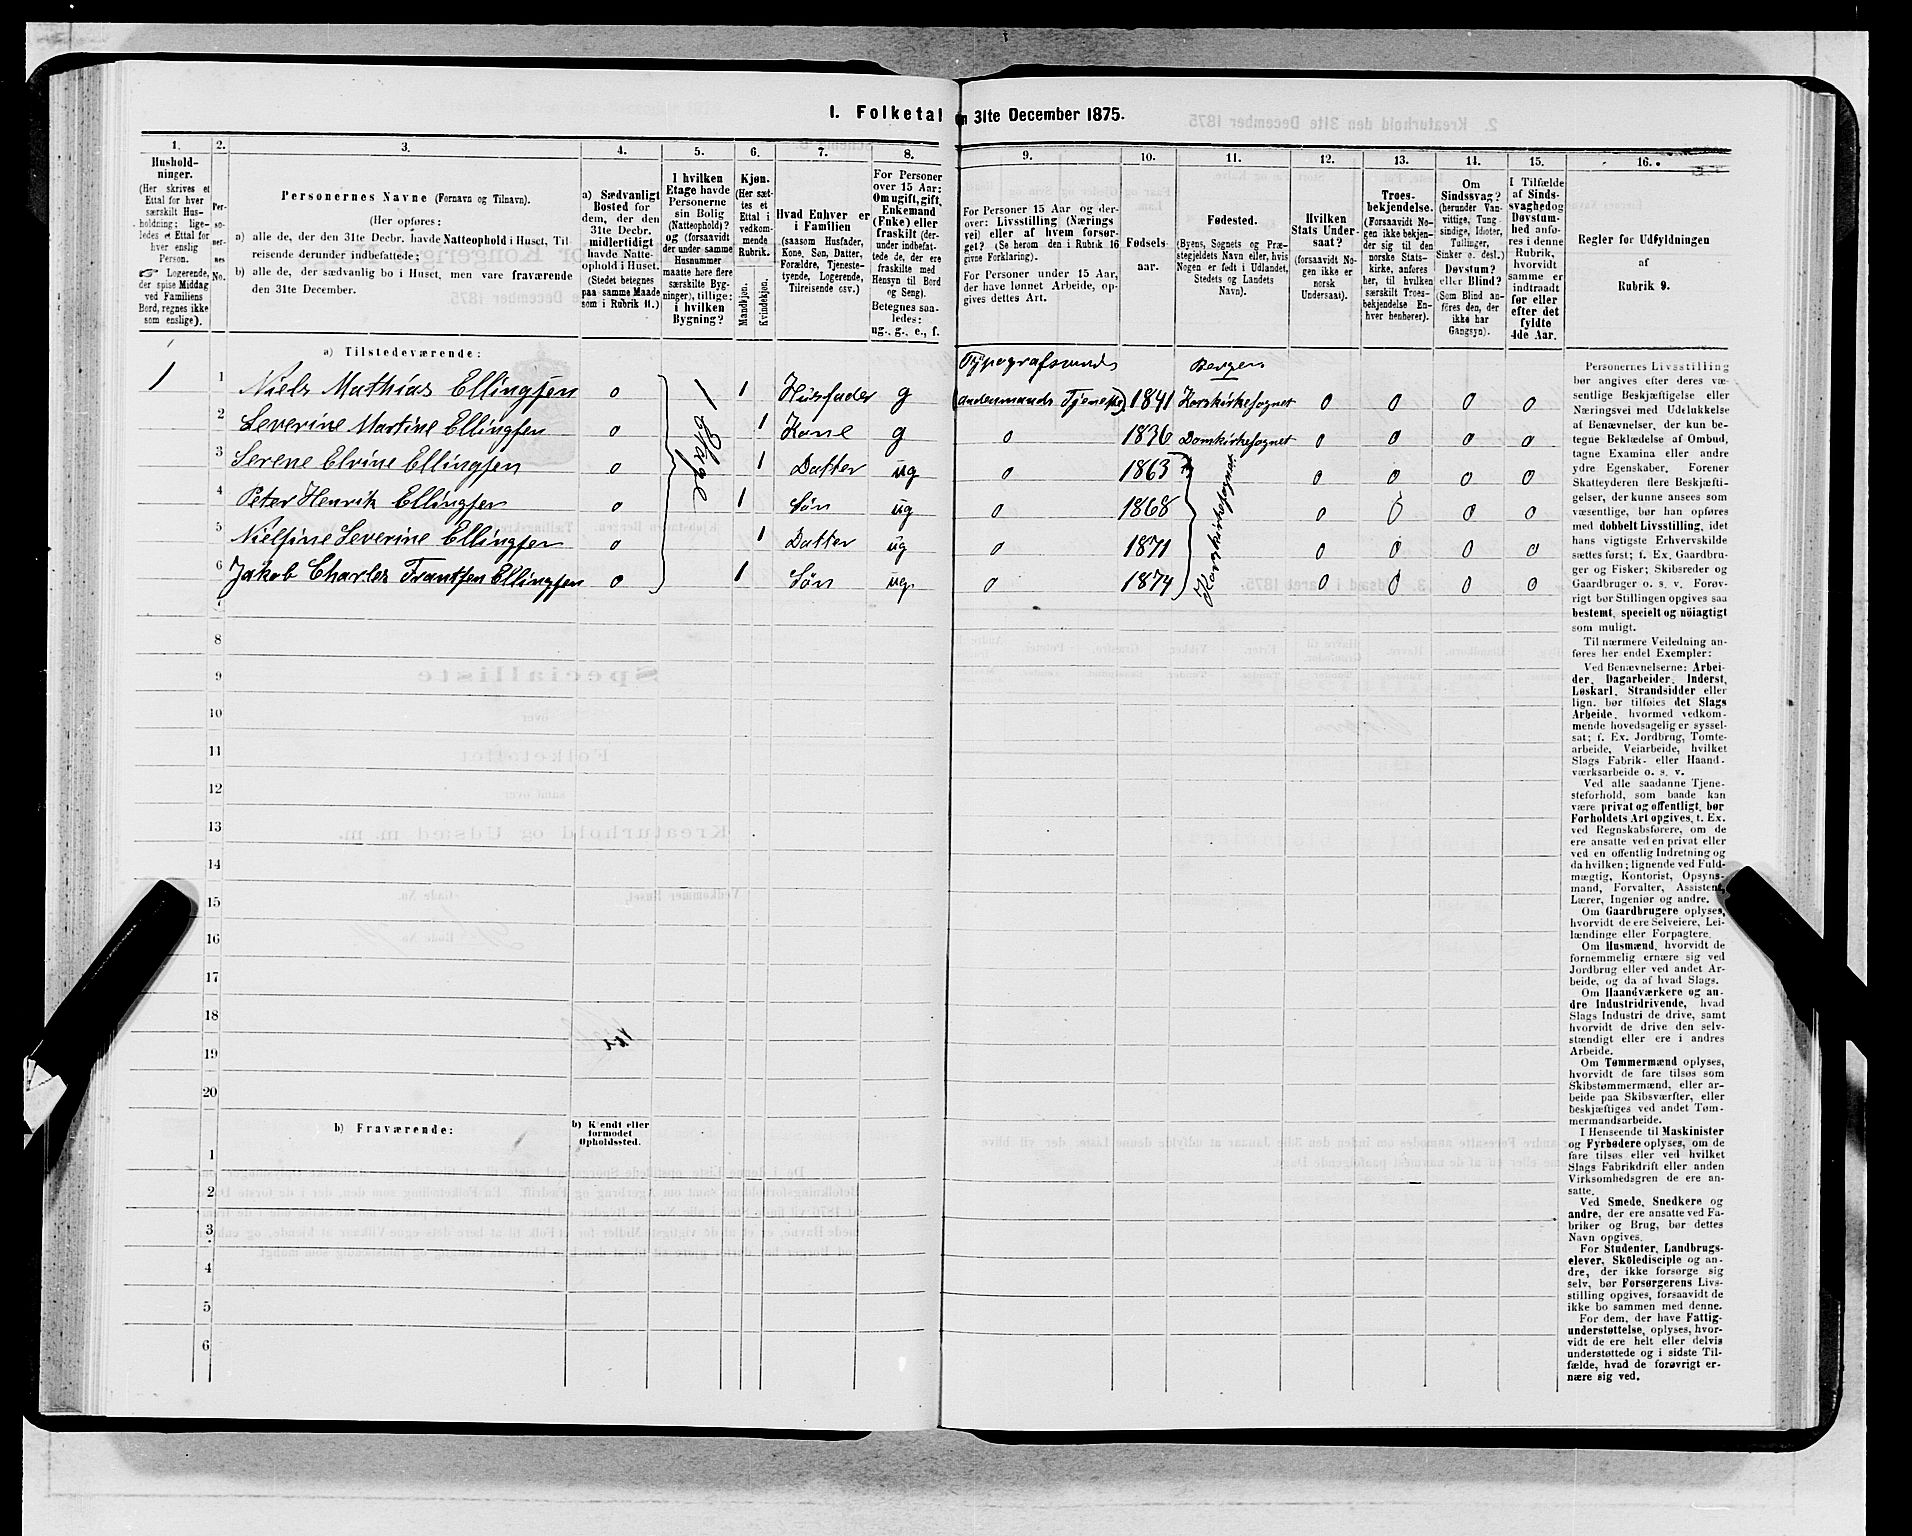 1. Folketal
n 31te December 1875.
1.
Hushold-
ninger.
(Her skrives et
Ettal for hver
særskilt Hus-
holdning; lige-
ledes et Ettal for
hver enslig
Person.
Logerende,
der spise Middag
ved Familiens
Bord, regnes ikke
som enslige).
2.
Per-
so-
ner-
nes
No.
3.
Personernes Navne (Fornavn og Tilnavn).
(Her opføres:
a) alle de, der den 31te Decbr. havde Natteophold i Huset, Til-
reisende derunder indbefattede;
b) alle de, der sædvanlig bo i Huset, men vare fraværende
den 31te December.
4.
a) Sædvanligt
Bosted for
dem, der den
31te Decbr.
midlertidigt
havde Natte-
ophold i Huset.
(Stedet betegnes
paa samme Maade
som i Rubrik 11.)
5.
I hvilken
Etage havde
Personerne
sin Bolig
(Natteophold)?
og (forsaavidt
der under samme
Husnummer
maatte høre flere
særskilte Byg-
ninger), tillige:
i hvilken
Bygning?
6.
Kjøn.
(Her sæt-
tes et
Ettal i
vedkom-
mende
Rubrik.
Mandkjøn.
Kvindekjøn.
7.
Hvad Enhver er
i Familien
(saasom Husfader,
Kone, Søn, Datter,
Forældre, Tjeneste-
tyende, Logerende,
Tilreisende osv.)
8.
For Personer
over 15 Aar:
Om ugift, gift,
Enkemand
(Enke) eller
fraskilt (der-
under indbefat-
tede de, der ere
fraskilte med
Hensyn til Bord
og Seng).
Betegnes saa-
ledes:
ug., g., e., f.
9.
For Personer 15 Aar og der-
over: Livsstilling (Nærings
vei) eller af hvem forsør-
get? (Se herom den i Rubrik 16
givne Forklaring).
For Personer under 15 Aar,
der have lønnet Arbeide, op-
gives dettes Art.
10.
Fødsels-
aar.
11.
Fødested.
(Byens, Sognets og Præ-
stegjeldets Navn eller, hvis
Nogen er født i Udlandet,
Stedets og Landets
Navn).
12.
Hvilken
Stats Under-
saat?
(forsaavidt No-
gen ikke er
norsk
Undersaat).
13.
Troes-
bekjendelse.
(Forsaavidt No-
gen ikke bekjen-
der sig til den
norske Stats-
kirke, anføres
her, til hvilken
særskilt Troes-
bekjendelse En-
hver henhører).
14.
Om
Sindssvag?
(herunder Van-
vittige, Tung
sindige, Idioter,
Tullinger,
Sinker o. desl.)
Døvstum?
eller Blind?
(Som Blind an-
føres den, der
ikke har
Gangsyn).
15.
I Tilfælde
af Sinds-
svaghed og
Døvstum-
hed anfø-
res i denne
Rubrik,
hvorvidt
samme er
indtraadt
før eller
efter det
fyldte
4de Aar.
16.
Regler for Udfyldningen
af
Rubrik 9.
a) Tilstedeværende:
Typografsvend
Bergen
1 1 Niels Mathias Ellingsen 0 1 Etage 1 Husfader g 1841 Korskirkesognet 0 0 0 0
2 Severine Martine Ellingsen 0 1 Kone g 0 1836 Domkirkesognet 0 0 0 0
3 Serene Elvine Ellingsen 0 1 Datter ug 0 1863 Korskirkesognet 0 0 0 0
4 Peter Henrik Ellingsen 0 1 Søn ug 0 1868 0 0 0 0
5 Nielsine Severine Ellingsen 0 1 Datter ug 0 1871 0 0 0 0
6 Jakob Charles Frantsen Ellingsen 0 1 Søn ug 0 1874 0 0 0 0
7
8
9
10
11
12
13
14
15
16
17
18
19
20
b) Fraværende:
b) Kjendt eller
formodet
Opholdssted.
1
2
3
4
5
6
Personernes Livsstilling
bør angives efter deres væ-
sentlige Beskjæftigelse eller
Næringsvei med Udelukkelse
af Benævnelser, der kun be-
tegne Beklædelse af Ombud,
tagne Examina eller andre
ydre Egenskaber. Forener
Skatteyderen flere Beskjæfti-
gelser, der kunne ansees som
væsentlige, bør han opføres
med dobbelt Livsstilling, idet
hans vigtigste Erhvervskilde
sættes først; f. Ex. Gaardbru-
ger og Fisker; Skibsreder og
Gaardbruger o. s. v. Forøv-
rigt bør Stillingen opgives saa
bestemt, specielt og nöiagtigt
som muligt.
Til nærmere Veiledning an-
føres her endel Exempler:
Ved Benævnelserne: Arbei-
der, Dagarbeider, Inderst,
Løskarl, Strandsidder eller
lign. bør tilføies det Slags
Arbeide, hvormed vedkom-
mende hovedsagelig er syssel-
sat; f. Ex. Jordbrug, Tomte-
arbeide, Veiarbeide, hvilket
Slags Fabrik- eller Haand-
værksarbeide o. s. v.
Ved alle saadanne Tjene-
steforhold, som baade kan
være privat og offentligt, bør
Forholdets Art opgives, t. Ex.
ved Regnskabsførere, om de
ere ansatte ved en privat eller
ved en offentlig Indretning og
da hvilken; lignende ved Fuld-
mægtig, Kontorist, Opsyns-
mand, Forvalter, Assistent,
Lærer, Ingeniør og andre.
Om Gaardbrugere oplyses,
hvorvidt de ere Selveiere, Lei-
lændinge eller Forpagtere.
Om Husmænd, hvorvidt de
fornemmelig ernære sig ved
Jordbrug eller ved andet Ar-
beide, og da af hvad Slags.
Om Haandværkere og an-
dre Industridrivende, hvad
Slags Industri de drive, samt
hvorvidt de drive den selv-
stændigt eller ere i andres
Arbeide.
Om Tømmermænd oplyses,
hvorvidt de fare tilsøs som
Skibstømmermænd, eller ar-
beide paa Skibsværfter, eller
beskjæftiges ved andet Tøm-
mermandsarbeide.
I Henseende til Maskinister
og Fyrbødere oplyses, om de
fare tilsøs eller ved hvilket
Slags Fabrikdrift eller anden
Virksomhedsgren de ere an-
satte.
Ved Smede, Snedkere og
andre, der ere ansatte ved Fa-
briker og Brug, bør dettes
Navn opgives.
For Studenter, Landbrugs-
elever, Skoledisciple og an-
dre, der ikke forsørge sig
selv, bør Forsørgerens Livs-
stilling opgives, forsaavidt de
ikke bo sammen med denne.
For dem, der have Fattig-
understøttelse, oplyses, hvor-
vidt de ere helt eller delvis
understøttede og i sidste Til-
fælde, hvad de forøvrigt er-
nære sig ved.